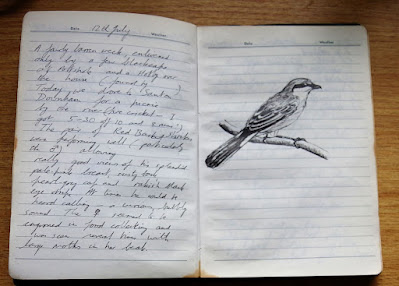 Date 12th July Weather
A fairly barren week, enlivened
only by a few Blackcaps
at and a Hobby over
the house (found by
Today we drove to Santon
Downham for a picnic
by the river
got 5-30 of 10 and
The pair of Red Backed Shrikes
was performing well (particularly
the ♂) allowing
really good views of his splendid
pale pink breast, rusty back
pearl-grey cap and rakish black
eye strip. At times he could be
heard calling - a bubbly
sound. The ♀ seemed to be
engaged in food collecting and
was seen several times with
large moths in her beak.
Date Weather